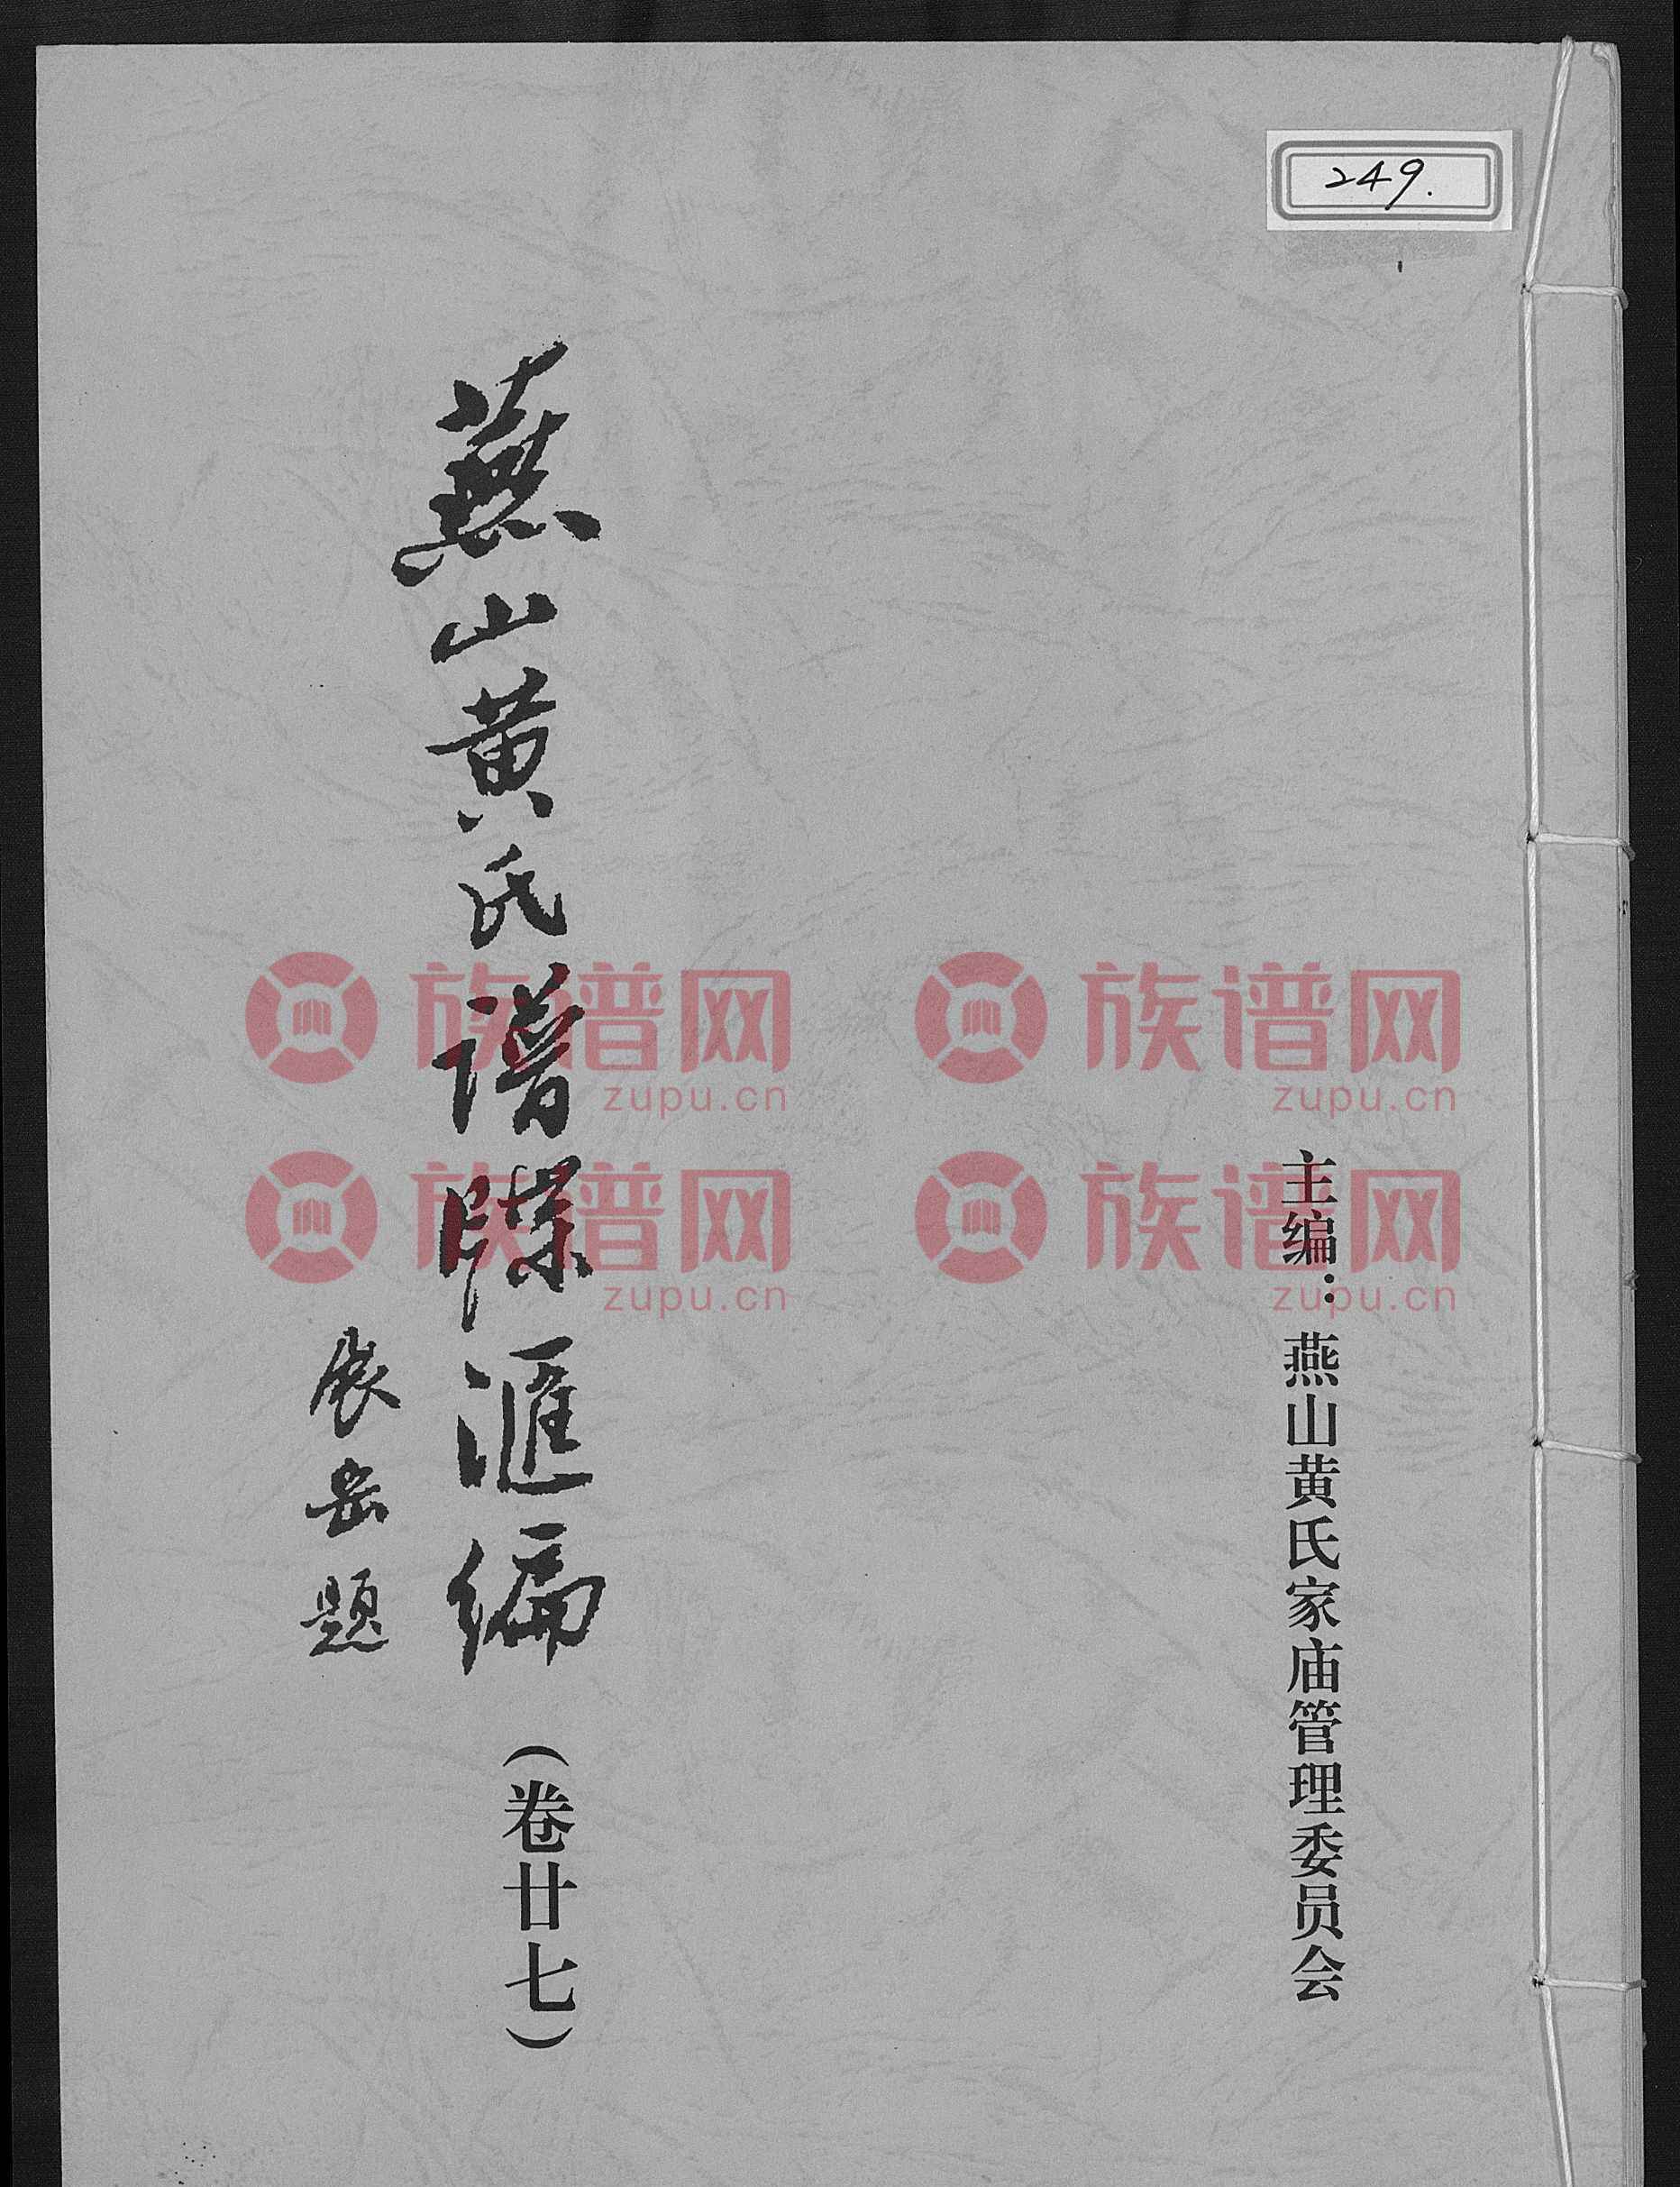 249.
主编：燕山黄氏家庙管理委员会
燕山黄氏谱牒匯编
（卷廿七）
展岳题
族谱网 族谱网
zupu.cn zupu.cn
族谱网 族谱网
zupu.cn zupu.cn